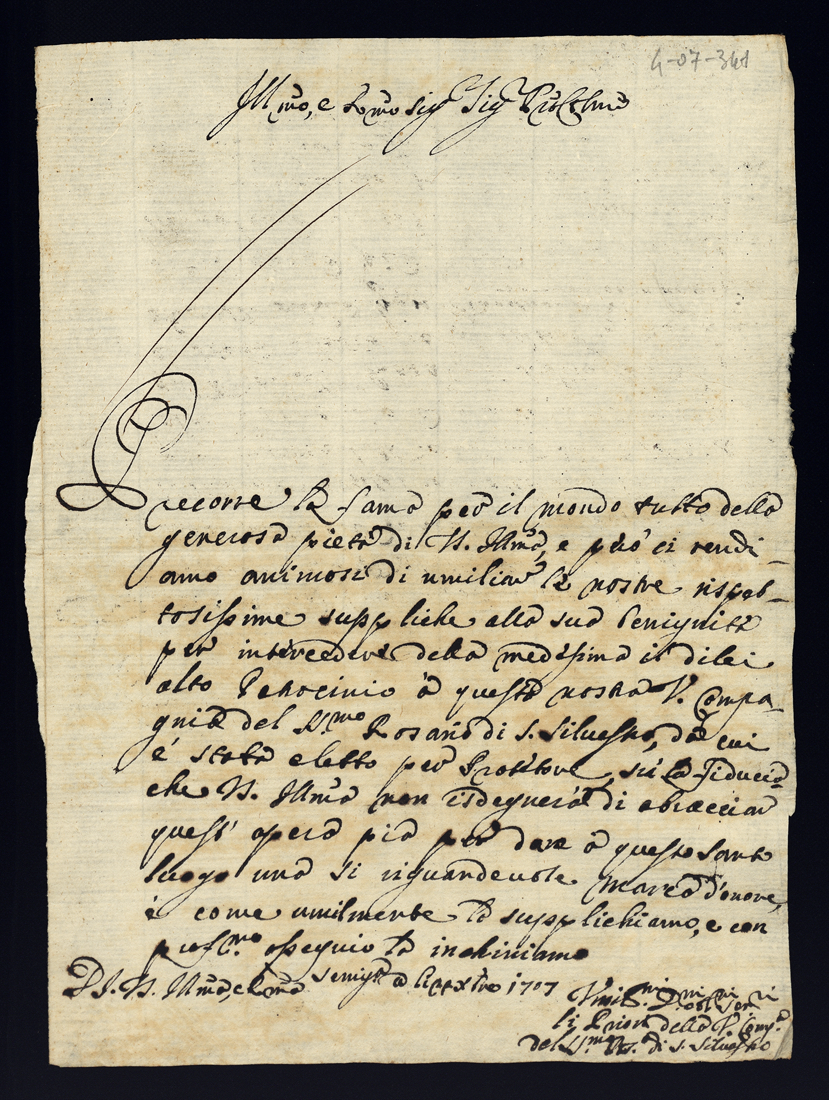 4-07-341
Ill.mo, e Sig.r Sig.r P.rone Col.mo
Precorre la fama per il mondo tutto della
generosa pietà di V. Ill.ma, e però ci rendi-
amo animosi di umiliar le nostre rispet-
tosissime suppliche alla sua benignità
per intercedere dalla medesima il di lei
alto Patrocinio à questa nostra V. Compa-
gnia del SS.mo Rosario di S. Silvestro, da cui
è stata eletto per Protettore, sù la Fiducia
che V. Ill.ma non isdegnerà di abracciar
quest' opera pia per dare à questo santo
luogo una si riguardevole marca d'onore,
è come umilmente la supplichiamo, e con
prof.mo ossequio la inchiniamo
Di V. Ill.ma, Senig.a 1707
Umil.mi D.mi Obl.mi Ser.ri
li Priori della V. Comp.a
del SS.mo Ros. di S. Silvestro